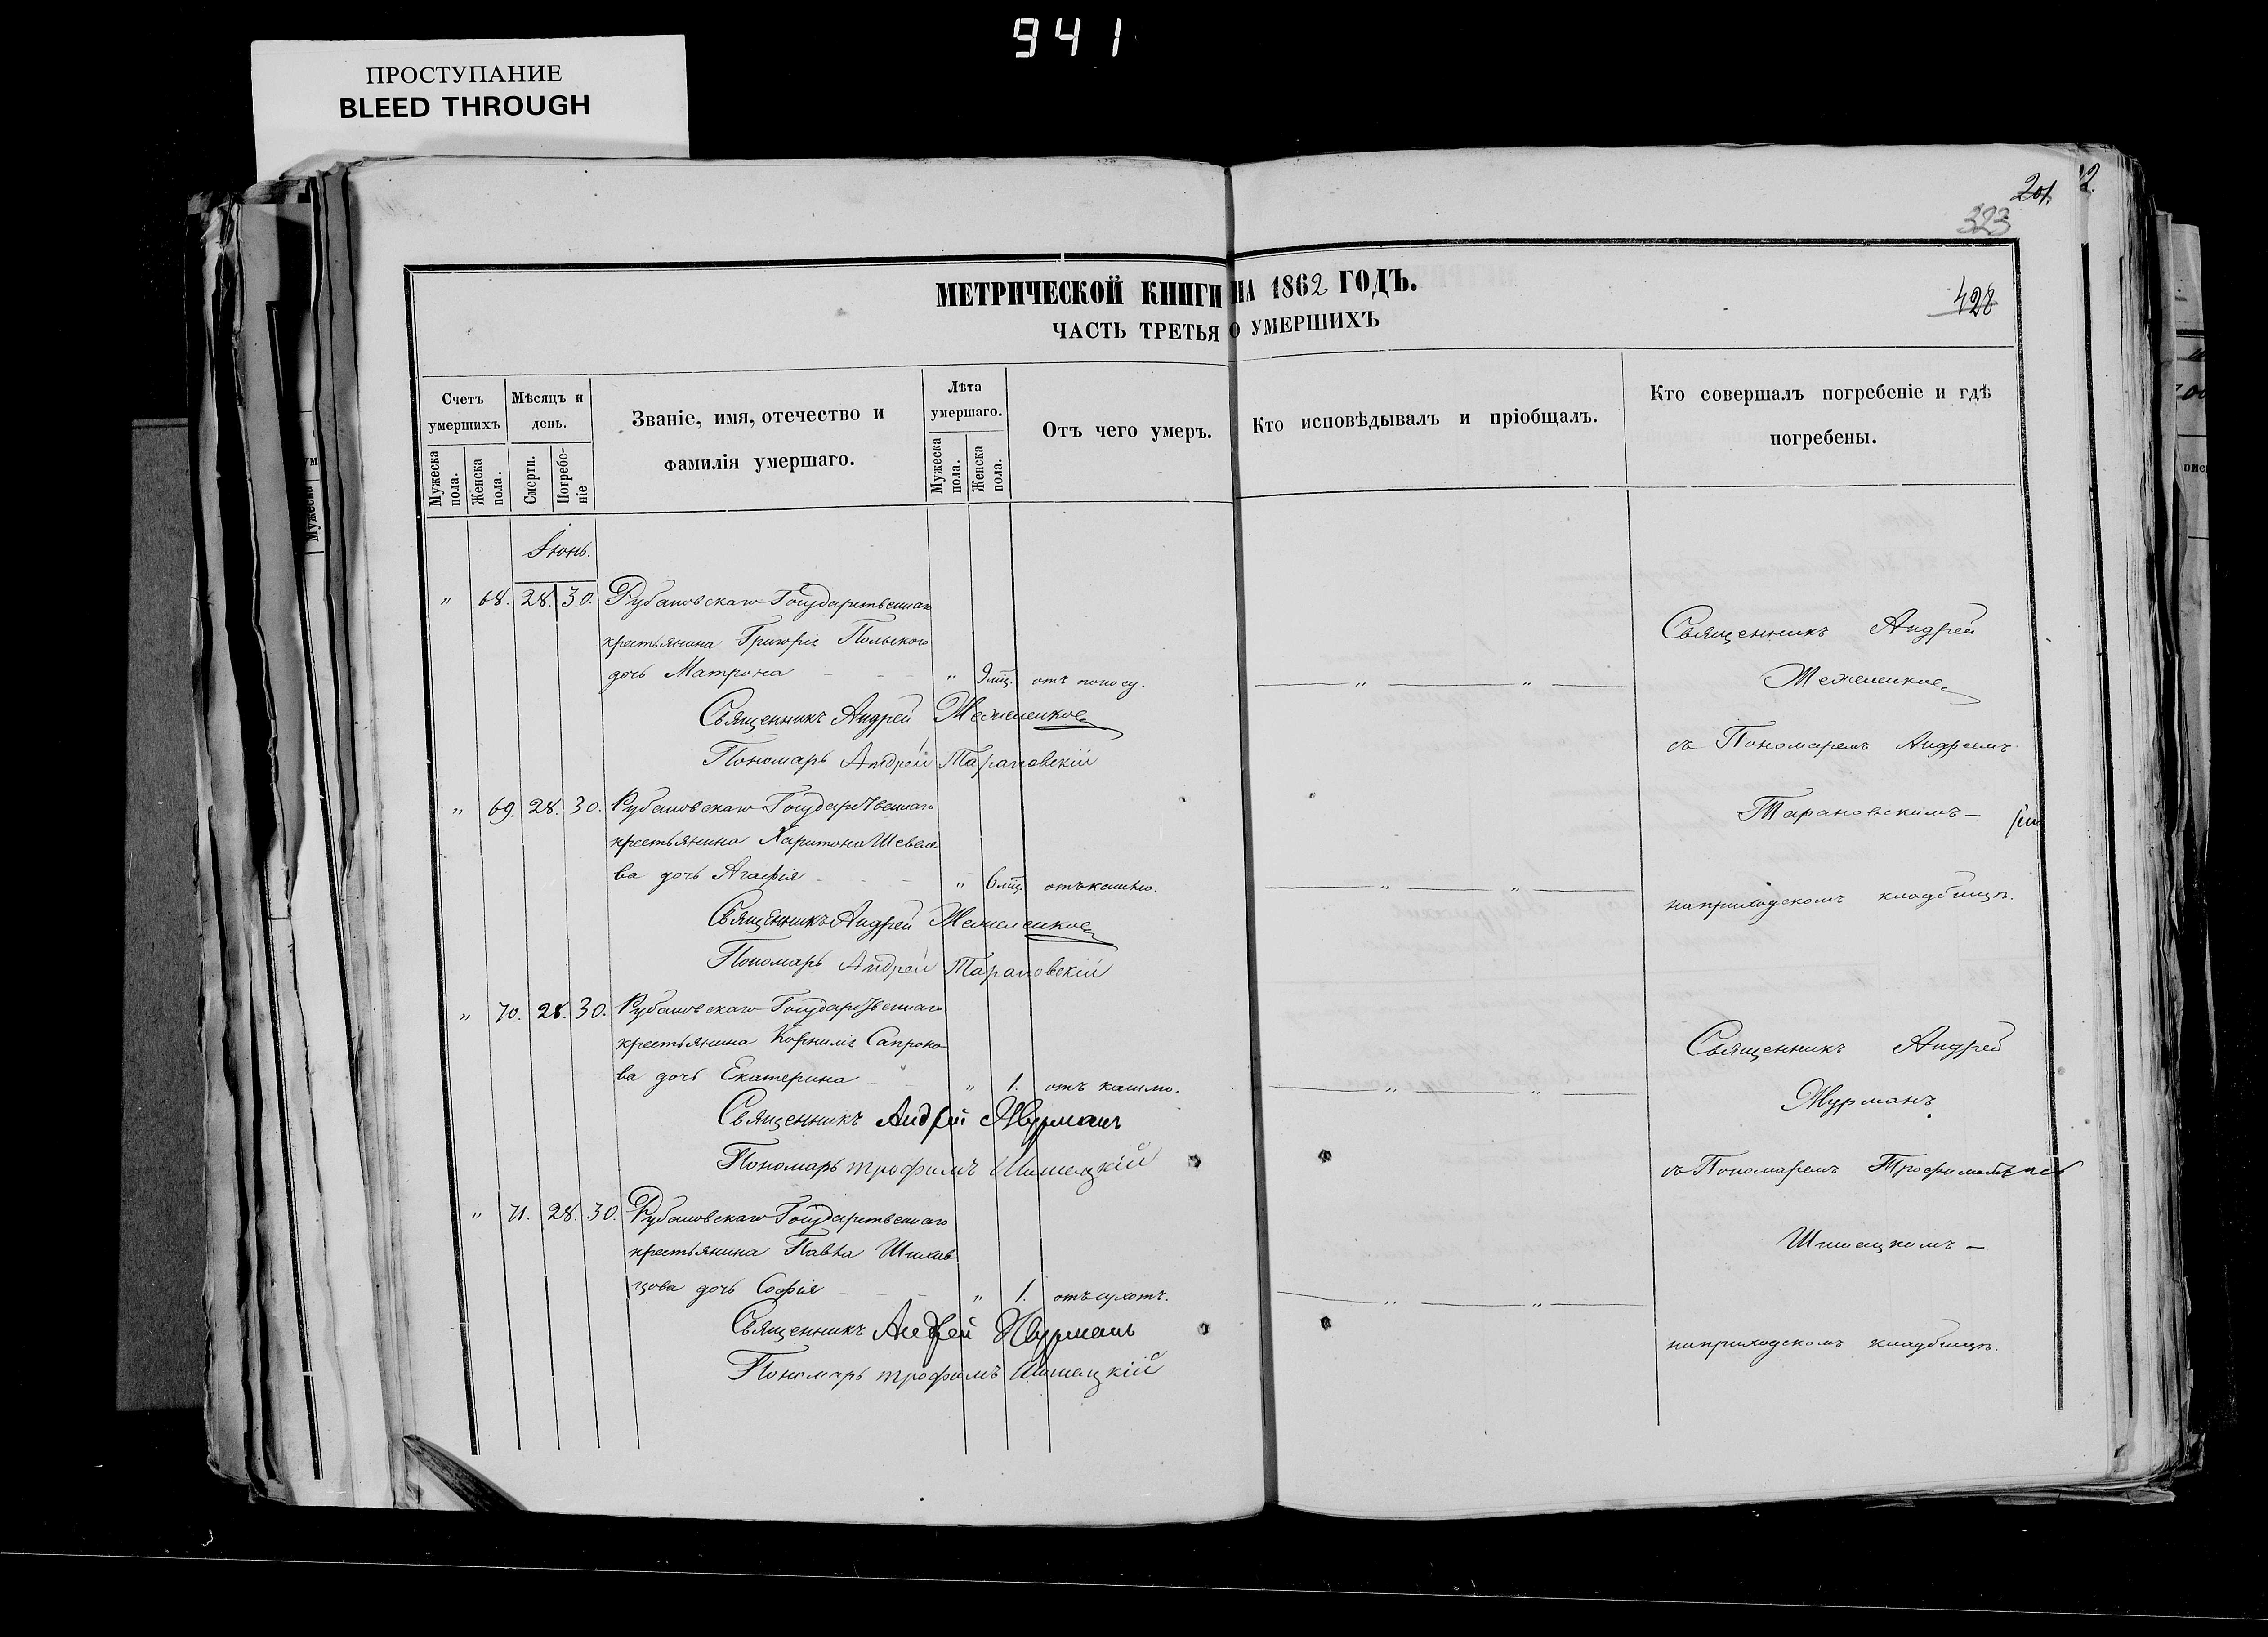 941
ПРОСТУПАНИЕ
BLEED THROUGH
201.
323
428
МЕТРИЧЕСКОЙ КНИГИ НА 1862 ГОДЪ.
ЧАСТЬ ТРЕТЬЯ О УМЕРШИХЪ
Счетъ умершихъ
Мужеска пола.
Женска пола.
Мѣсяцъ и день.
Смерти.
Погребеніе
Званіе, имя, отечество и
фамилія умершаго.
Лѣта умершаго.
Мужеска пола.
Женска пола.
Отъ чего умеръ.
Кто исповѣдывалъ и пріобщалъ.
Кто совершалъ погребеніе и гдѣ
погребены.
Іюнь.
" 68. 28. 30. Рубановскаго Государственнаго
крестьянина Григорія Польского
дочь Матрона - - - " 9 мѣц. отъ поносу. — " — " —
Священникъ Андрей
Священникъ Андрей
Пономарь Андрей Тарановскій
съ Пономаремъ Андреемъ
Тарановскимъ —
" 69. 28. 30. Рубановскаго Государственнаго
крестьянина Харитона Шевелева
дочь Агафія - - - " 6 мѣц. отъ кашлю. — " — " —
на приходскомъ кладбищѣ.
Священникъ Андрей
Пономарь Андрей Тарановскій
" 70. 28. 30. Рубановскаго Государственнаго
крестьянина Корнилія Сапроно-
ва дочь Екатерина - - " 1. отъ кашлю. — " — " —
Священникъ Андрей
Журманъ
Священникъ Андрей Журманъ
Пономарь трофимъ Шишацкій
съ Пономаремъ Трофимомъ
" 71. 28. 30. Рубановскаго Государственнаго
крестьянина Павла
цова дочь Софія - - - " 1. отъ сухотъ. — " — " —
Шишацкимъ —
Священникъ Андрей Журманъ
Пономарь трофимъ Шишацкій
на приходскомъ кладбищѣ.